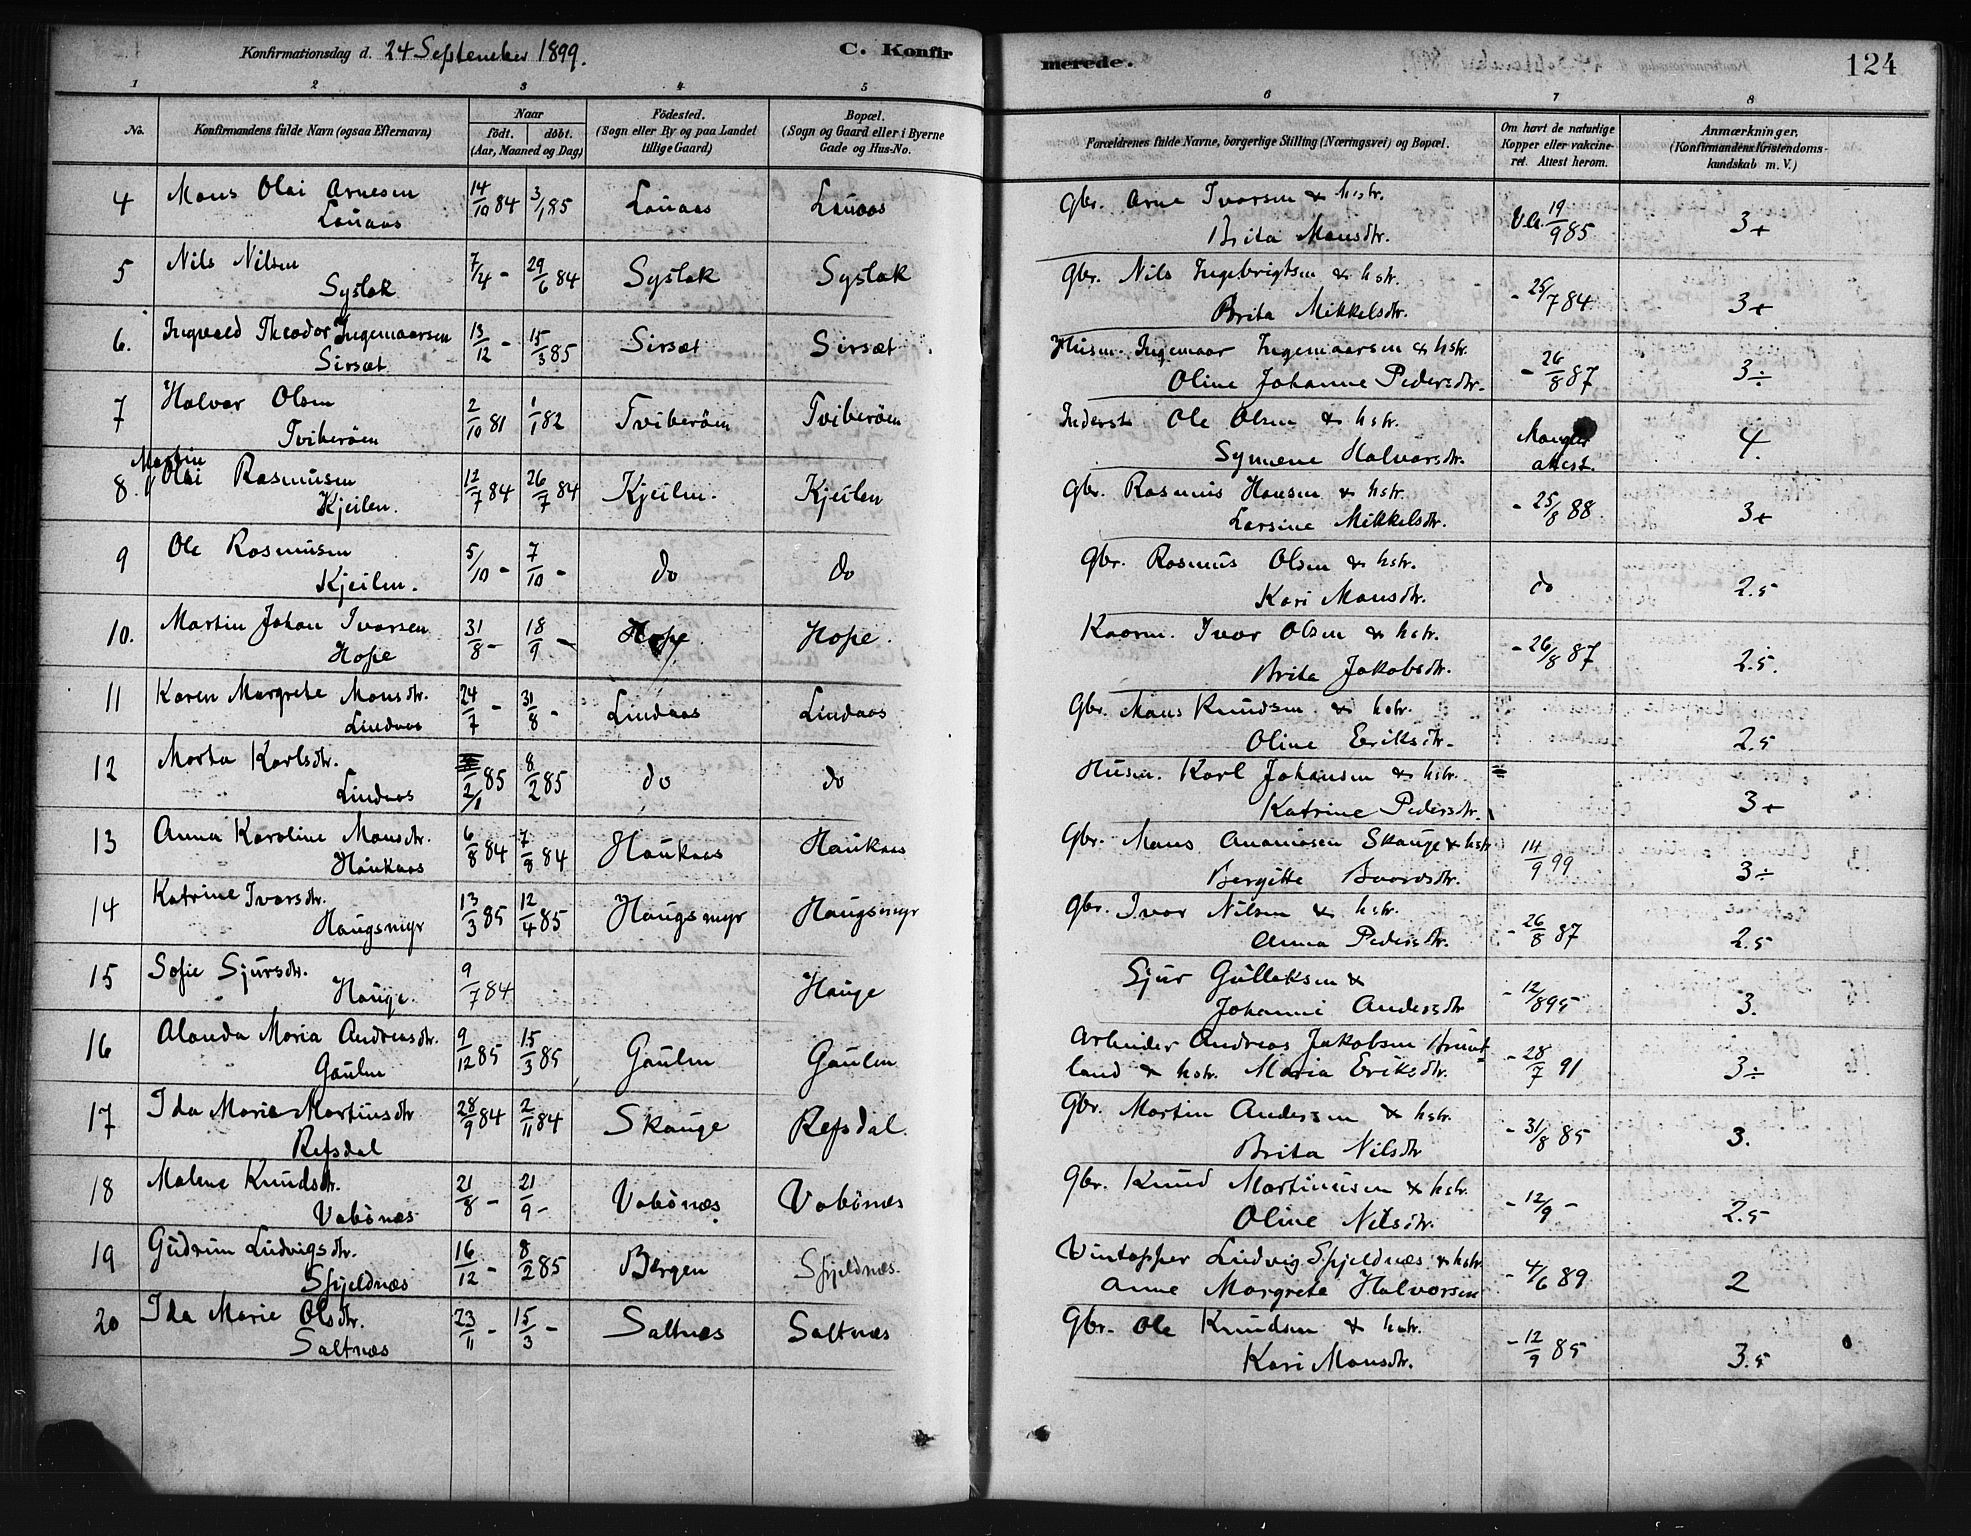 Konfirmationsdag d. 24 September 1899.
C. Konfirmerede.
124
1 2 3 4 5 6 7 8
No.
Konfirmandens fulde Navn (ogsaa Efternavn)
Naar
født. døbt.
(Aar, Maaned og Dag)
Fødested.
(Sogn eller By og paa Landet
tillige Gaard)
Bopæl.
(Sogn og Gaard eller i Byerne
Gade og Hus-No.
Forældrenes fulde Navne, borgerlige Stilling (Næringsvei) og Bopæl.
Om havt de naturlige
Kopper eller vakcineret. Attest herom.
Anmærkninger.
(Konfirmandens Kristendomskundskab m. V.)
4 Mons Olai Arnesen 14/10 84 3/1 85 Lauaas Lauaas Gbr. Arne Ivarsen & hstr. V.a. 19/9 85 3+
Lauaas Brita Monsdtr.
5 Nils Nilsen 7/4 - 29/6 84 Syslak Syslak Gbr. Nils Ingebrigtsen & hstr. - 25/7 84 3+
Syslak Brita Mikkelsdtr.
6. Ingvald Theodor Ingemaarsen 13/12 - 15/3 85 Sirsæt Sirsæt Husm. Ingemaar Ingemaarsen & hstr. - 26/8 87 3÷
Sirsæt Oline Johanne Pedersdtr.
7 Halvor Olsen 2/10 81 1/1 82 Tviberöen Tviberöen Inderst Ole Olsen & hstr. Mangler 4.
Tviberöen Synneve Halvorsdtr. attest.
8. Martin Olai Rasmusen 12/7 84 26/7 84 Kjeilen. Kjeilen Gbr. Rasmus Hansen & hstr. - 25/8 88 3+
Kjeilen. Larsine Mikkelsdtr.
9 Ole Rasmusen 5/10 - 7/10 - do do Gbr. Rasmus Olsen & hstr. do 2.5
Kjeilen. Kari Monsdtr.
10. Martin Johan Ivarsen 31/8 - 18/9 - Hope Hope. Kaarm. Ivar Olsen & hstr. - 26/8 87 2.5.
Hope Brita Jakobsdtr.
11 Karen Margrete Monsdtr. 24/7 - 31/8 - Lindaas Lindaas Gbr. Mons Knudsen & hstr. 2.5
Lindaas Oline Eriksdtr.
12 Marta Karlsdtr. 2/1 85 8/2 85 do do Husm. Karl Johansen & hstr. = 3+
Lindaas Katrine Pedersdtr.
13 Anna Karoline Monsdtr. 6/8 84 7/9 84 Haukaas Haukaas Gbr. Mons Ananiasen Skauge & hstr 14/9 99 3÷
Haukaas Bergitte Baardsdtr.
14 Katrine Ivarsdtr. 13/3 85 12/4 85 Haugsmyr Haugsmyr Gbr. Ivar Nilsen & hstr. - 26/8 87 2.5
Haugsmyr Anna Pedersdtr.
15 Sofie Sjursdtr. 9/7 84 Hauge Sjur Gulleksen & - 12/8 95 3.
Hauge. Johanne Andersdtr
16 Alanda Maria Andreasdtr. 9/12 85 15/3 85 Gaulen Gaulen Arbeider Andreas Jakobsen Hunt- - 28/7 91 3÷
Gaulen land & hstr. Maria Eriksdtr.
17 Ida Marie Martinsdtr 28/9 84 2/11 84 Skauge Refsdal. Gbr. Martin Andersen & hstr. - 31/8 85 3.
Refsdal Brita Nilsdtr
18 Malene Knudsdtr. 21/8 - 21/9 - Vabönæs Vabönæs Gbr. Knud Martinusen & hstr. - 12/9 - 2.5
Vabönæs Oline Nilsdtr.
19 Gudrun Ludvigsdtr. 16/12 - 8/2 85 Bergen Spjeldnæs. Vintapper Ludvig Spjeldnæs & hstr - 4/6 89 2
Spjeldnæs Anne Margrete Halvorsen
20 Ida Marie Olsdtr. 23/11 - 15/3 - Saltnæs Saltnæs Gbr. Ole Knudsen & hstr. - 12/9 85 3.5
Saltnæs Kari Monsdtr.